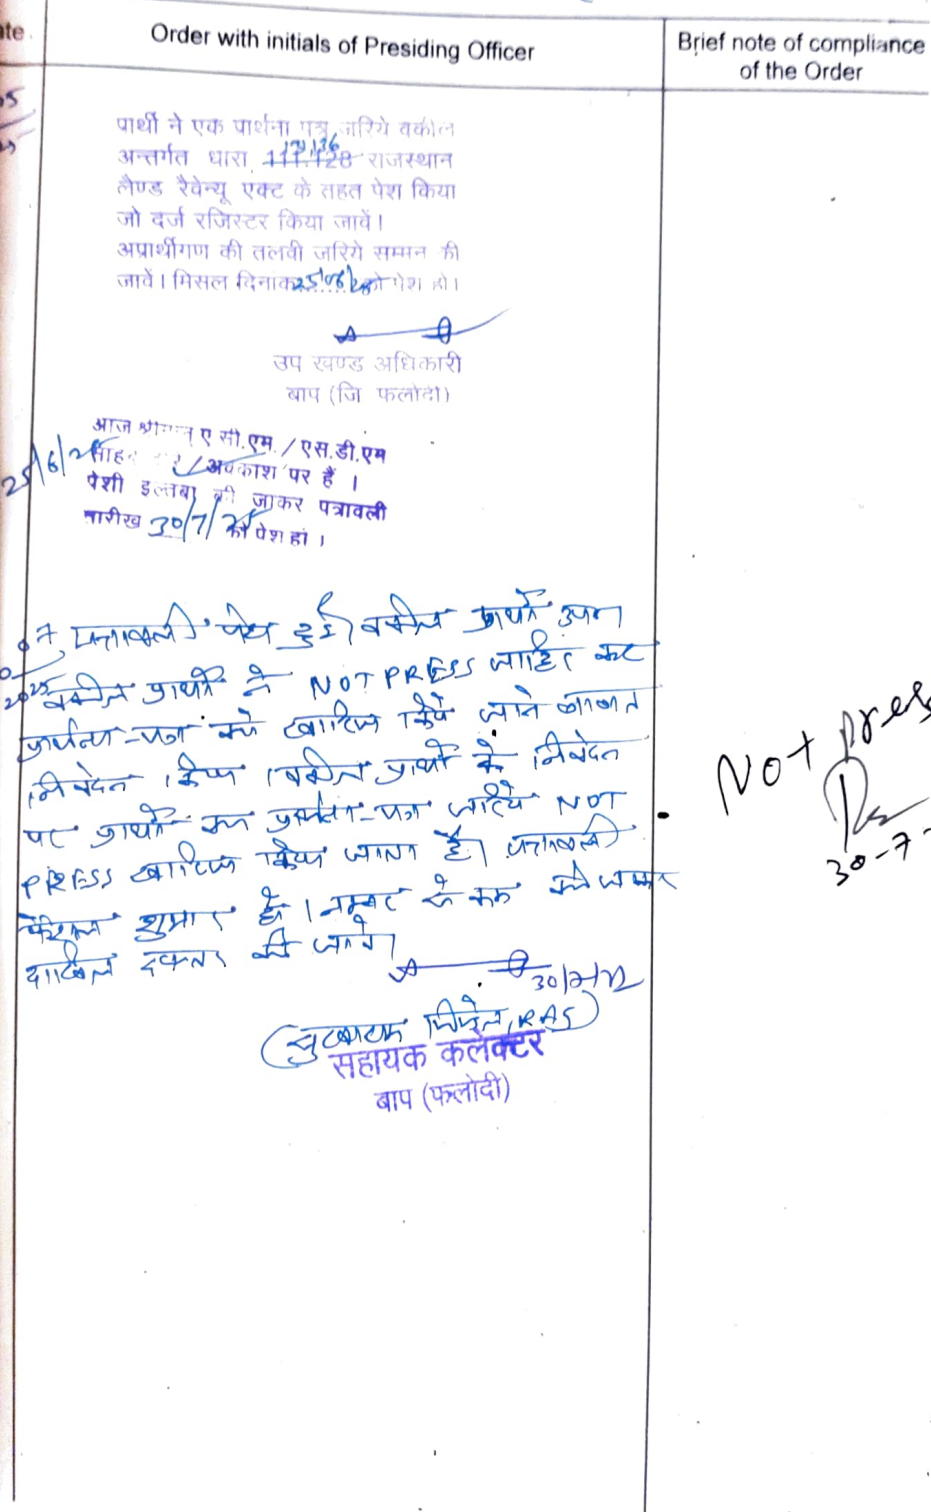 te.
Order with initials of Presiding Officer
Brief note of compliance
of the Order
पार्थी ने एक पार्थना पत्र जरिये वकील
अन्तर्गत धारा 111.128 131,136 राजस्थान
लैण्ड रैवेन्यू एक्ट के तहत पेश किया
जो दर्ज रजिस्टर किया जावें।
अप्रार्थीगण की तलवी जरिये सम्मन की
जावें। मिसल दिनांक 25/06/25 को पेश हो।
उप खण्ड अधिकारी
बाप (जि फलोदी)
आज श्रीमान् ए सी.एम. / एस.डी.एम
25/6/25
/ अवकाश पर हैं ।
पेशी इल्तबा की जाकर पत्रावली
तारीख 30/7/25 को पेश हों ।
पत्रावली पेश हुई। वकील प्रार्थी उप।
2025 वकील प्रार्थी ने NOT PRESS जाहिर कर
प्रार्थना-पत्र को खारिज किये जाने बाबत
निवेदन किया। वकील प्रार्थी के निवेदन
पर प्रार्थी का प्रार्थना-पत्र जरिये NOT
PRESS खारिज किया जाता है। पत्रावली
फैसल शुमार हो। नम्बर से कम की जाकर
दाखिल दफ्तर की जावे।
Not press
30-7-
सहायक कलेक्टर
बाप (फलोदी)